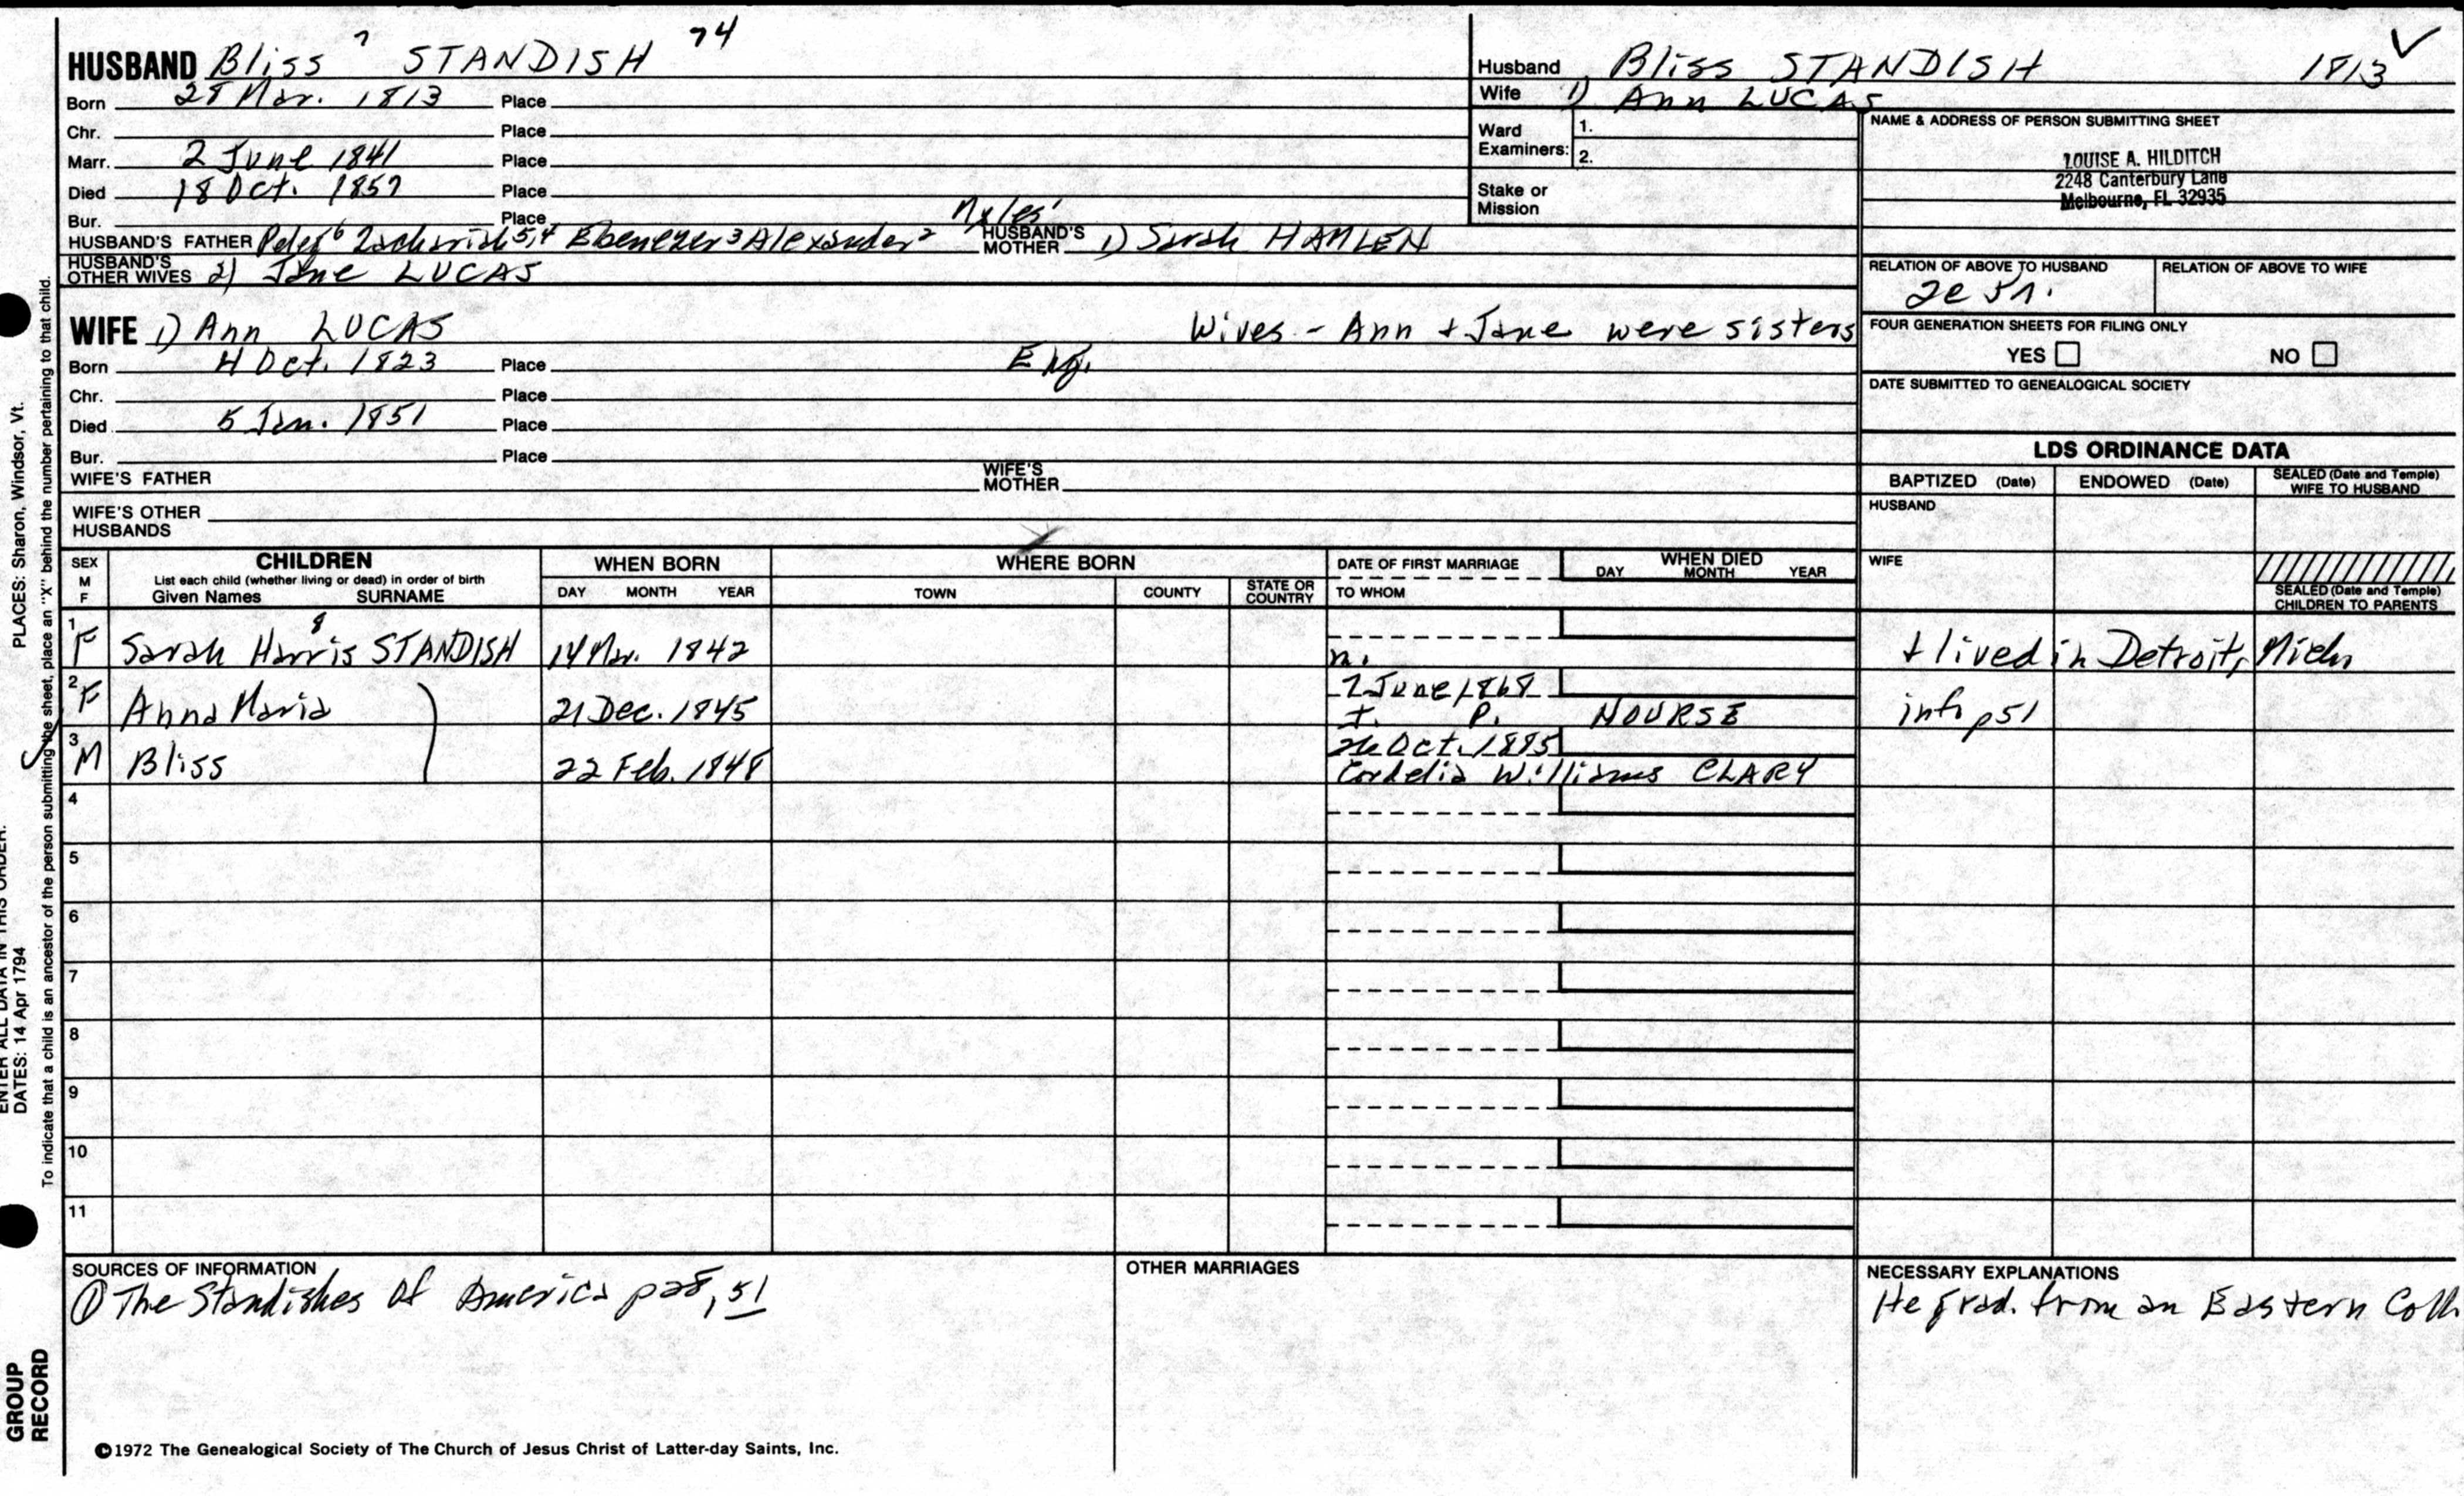 HUSBAND Bliss 7 STANDISH 74
Born 28 Mar. 1813 Place
Chr. Place
Marr. 2 June 1841 Place
Died 18 Oct. 1857 Place
Bur. Place
HUSBAND'S FATHER Peter 6 Zachariah 5,4 Ebenezer 3 Alexander 2 Myles' HUSBAND'S MOTHER 1) Sarah HAMLEN
HUSBAND'S OTHER WIVES 2) Jane LUCAS
Husband Bliss STANDISH 1813 ✓
Wife 1) Ann LUCAS
Ward Examiners: 1.
2.
Stake or Mission
NAME & ADDRESS OF PERSON SUBMITTING SHEET
LOUISE A. HILDITCH
2248 Canterbury Lane
Melbourne, FL 32935
RELATION OF ABOVE TO HUSBAND RELATION OF ABOVE TO WIFE
WIFE 1) Ann LUCAS Wives - Ann + Jane were sisters
Born 4 Oct. 1823 Place Eng.
Chr. Place
Died 5 Jan. 1851 Place
Bur. Place
WIFE'S FATHER WIFE'S MOTHER
WIFE'S OTHER HUSBANDS
FOUR GENERATION SHEETS FOR FILING ONLY
YES NO
DATE SUBMITTED TO GENEALOGICAL SOCIETY
LDS ORDINANCE DATA
BAPTIZED (Date) ENDOWED (Date) SEALED (Date and Temple) WIFE TO HUSBAND
HUSBAND
WIFE
SEALED (Date and Temple) CHILDREN TO PARENTS
SEX M F CHILDREN List each child (whether living or dead) in order of birth Given Names SURNAME
WHEN BORN DAY MONTH YEAR
WHERE BORN TOWN COUNTY STATE OR COUNTRY
DATE OF FIRST MARRIAGE TO WHOM
WHEN DIED DAY MONTH YEAR
1 F Sarah Harris 8 STANDISH 14 Mar. 1842 n. + lived in Detroit, Mich
2 F Anna Maria 21 Dec. 1845 7 June 1868 I. P. NOURSE info p51
3 M Bliss 22 Feb. 1848 26 Oct. 1885 Cordelia Williams CLARY
4
5
6
7
8
9
10
11
SOURCES OF INFORMATION
① The Standishes of America p28, 51
OTHER MARRIAGES
NECESSARY EXPLANATIONS
He grad. from an Eastern Coll
©1972 The Genealogical Society of The Church of Jesus Christ of Latter-day Saints, Inc.
ENTER ALL DATA IN THIS ORDER:
DATES: 14 Apr 1794 PLACES: Sharon, Windsor, Vt.
To indicate that a child is an ancestor of the person submitting the sheet, place an "X" behind the number pertaining to that child.
GROUP RECORD